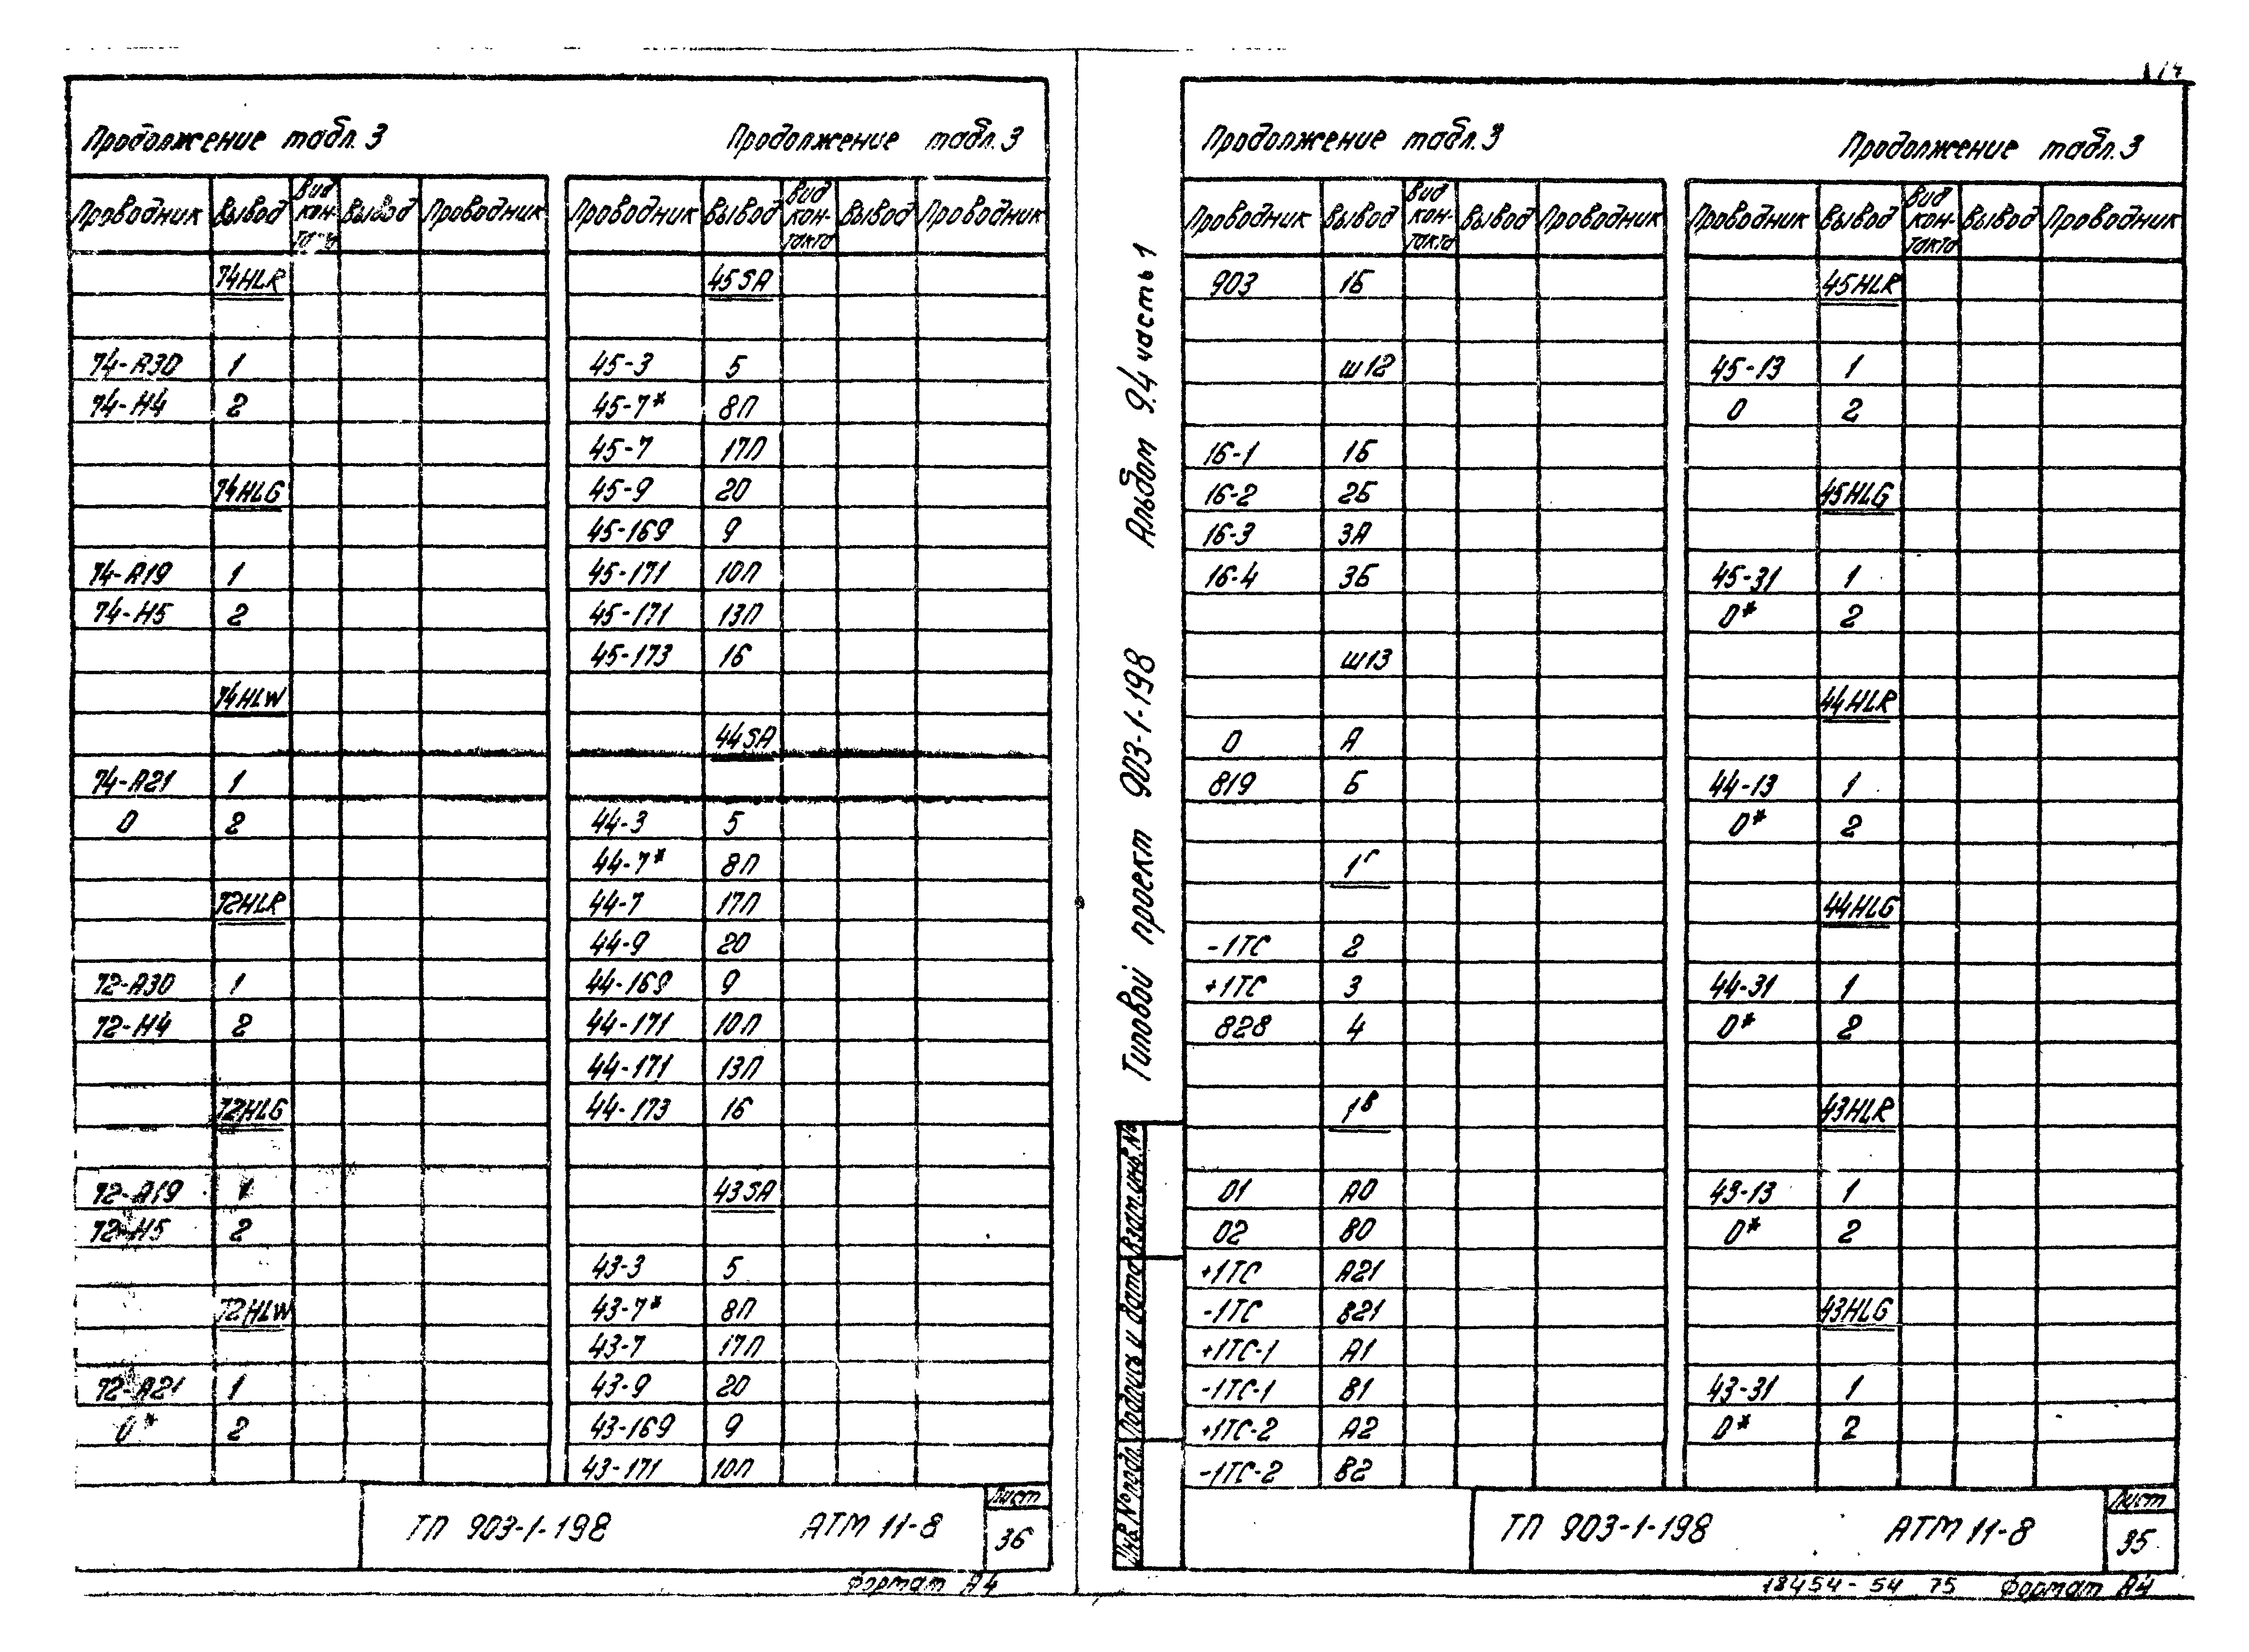 Продолжение табл. 3
Проводник Вывод Вид кон- Вывод Проводник
74HLR
74-А30 1
74-Н4 2
74HLG
74-А19 1
74-Н5 2
74HLW
74-А21 1
0 2
72HLR
72-А30 1
72-Н4 2
72HLG
72-А19 1
72-Н5 2
72HLW
72-А21 1
0* 2
Продолжение табл. 3
Проводник Вывод Вид кон-такта Вывод Проводник
45SA
45-3 5
45-7* 8П
45-7 17П
45-9 20
45-169 9
45-171 10П
45-171 13П
45-173 16
44SA
44-3 5
44-7* 8П
44-7 17П
44-9 20
44-169 9
44-171 10П
44-171 13П
44-173 16
43SA
43-3 5
43-7* 8П
43-7 17П
43-9 20
43-169 9
43-171 10П
ТП 903-1-198 АТМ 11-8
Лист
36
Формат А4
Альбом 9.4 часть 1
Типовой проект 903-1-198
Взам. инв. №
Подпись и дата
Инв. № подл.
Продолжение табл. 3
Проводник Вывод Вид кон-такта Вывод Проводник
903 1Б
ш12
16-1 1Б
16-2 2Б
16-3 3А
16-4 3Б
ш13
0 А
819 Б
1г
-1ТС 2
+1ТС 3
828 4
1в
01 А0
02 В0
+1ТС А21
-1ТС В21
+1ТС-1 А1
-1ТС-1 В1
+1ТС-2 А2
-1ТС-2 В2
Продолжение табл. 3
Проводник Вывод Вид кон-такта Вывод Проводник
45HLR
45-13 1
0 2
45HLG
45-31 1
0* 2
44HLR
44-13 1
0* 2
44HLG
44-31 1
0* 2
43HLR
43-13 1
0* 2
43HLG
43-31 1
0* 2
ТП 903-1-198 АТМ 11-8
Лист
35
18454-54 75 Формат А4